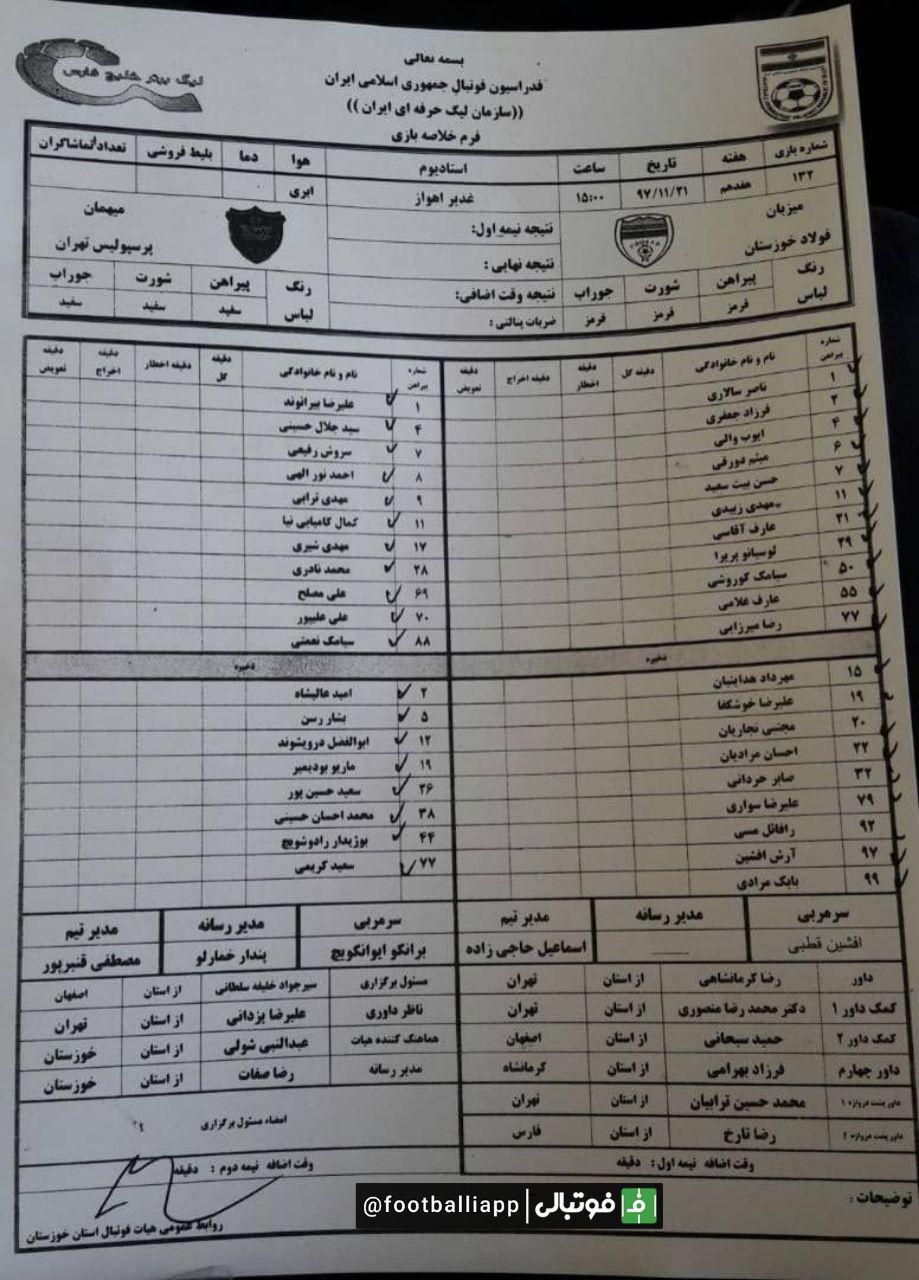 بسمه تعالی
لیگ برتر خلیج فارس
فدراسیون فوتبال جمهوری اسلامی ایران
((سازمان لیگ حرفه ای ایران))
فرم خلاصه بازی
شماره بازی هفته تاریخ ساعت استادیوم هوا دما بلیط فروشی تعداد تماشاگران
۱۳۲ هفدهم ۹۷/۱۱/۲۱ ۱۵:۰۰ غدیر اهواز ابری
میزبان
فولاد خوزستان
نتیجه نیمه اول:
نتیجه نهایی :
میهمان
پرسپولیس تهران
رنگ لباس پیراهن شورت جوراب
قرمز قرمز قرمز
نتیجه وقت اضافی:
ضربات پنالتی :
رنگ لباس پیراهن شورت جوراب
سفید سفید سفید
شماره پیراهن نام و نام خانوادگی دقیقه گل دقیقه اخطار دقیقه اخراج دقیقه تعویض
۱ ناصر سالاری
۲ فرزاد جعفری
۴ ایوب والی
۶ میثم دورقی
۷ حسن بیت سعید
۱۱ مهدی زبیدی
۲۱ عارف آقاسی
۲۹ لوسیانو پریرا
۵۰ سیامک کوروشی
۵۵ عارف غلامی
۷۷ رضا میرزایی
ذخیره
۱۵ مهرداد هدایتیان
۱۹ علیرضا خوشکفا
۲۰ مجتبی نجاریان
۲۲ احسان مرادیان
۳۲ صابر حردانی
۷۹ علیرضا سواری
۹۲ رافائل مسی
۹۷ آرش افشین
۹۹ بابک مرادی
شماره پیراهن نام و نام خانوادگی دقیقه گل دقیقه اخطار دقیقه اخراج دقیقه تعویض
۱ علیرضا بیرانوند
۴ سید جلال حسینی
۷ سروش رفیعی
۸ احمد نور الهی
۹ مهدی ترابی
۱۱ کمال کامیابی نیا
۱۷ مهدی شیری
۲۸ محمد نادری
۶۹ علی مصلح
۷۰ علی علیپور
۸۸ سیامک نعمتی
ذخیره
۲ امید عالیشاه
۵ بشار رسن
۱۲ ابوالفضل درویشوند
۱۹ ماریو بودیمیر
۲۶ سعید حسین پور
۳۸ محمد احسان حسینی
۴۴ بوژیدار رادوشویچ
۷۷ سعید کریمی
سرمربی مدیر رسانه مدیر تیم سرمربی مدیر رسانه مدیر تیم
افشین قطبی اسماعیل حاجی زاده برانکو ایوانکویچ پندار خمارلو مصطفی قنبرپور
داور رضا کرمانشاهی از استان تهران مسئول برگزاری سیرجواد خلیفه سلطانی از استان اصفهان
کمک داور ۱ دکتر محمد رضا منصوری از استان تهران ناظر داوری علیرضا یزدانی از استان تهران
کمک داور ۲ حمید سبحانی از استان اصفهان هماهنگ کننده هیات عبدالنبی شولی از استان خوزستان
داور چهارم فرزاد بهرامی از استان کرمانشاه مدیر رسانه رضا صفات از استان خوزستان
داور پشت دروازه ۱ محمد حسین ترابیان از استان تهران
امضاء مسئول برگزاری
داور پشت دروازه ۲ رضا تارخ از استان فارس
وقت اضافه نیمه اول : دقیقه وقت اضافه نیمه دوم : دقیقه
توضیحات :
روابط عمومی هیات فوتبال استان خوزستان
@footballiapp | فوتبالی